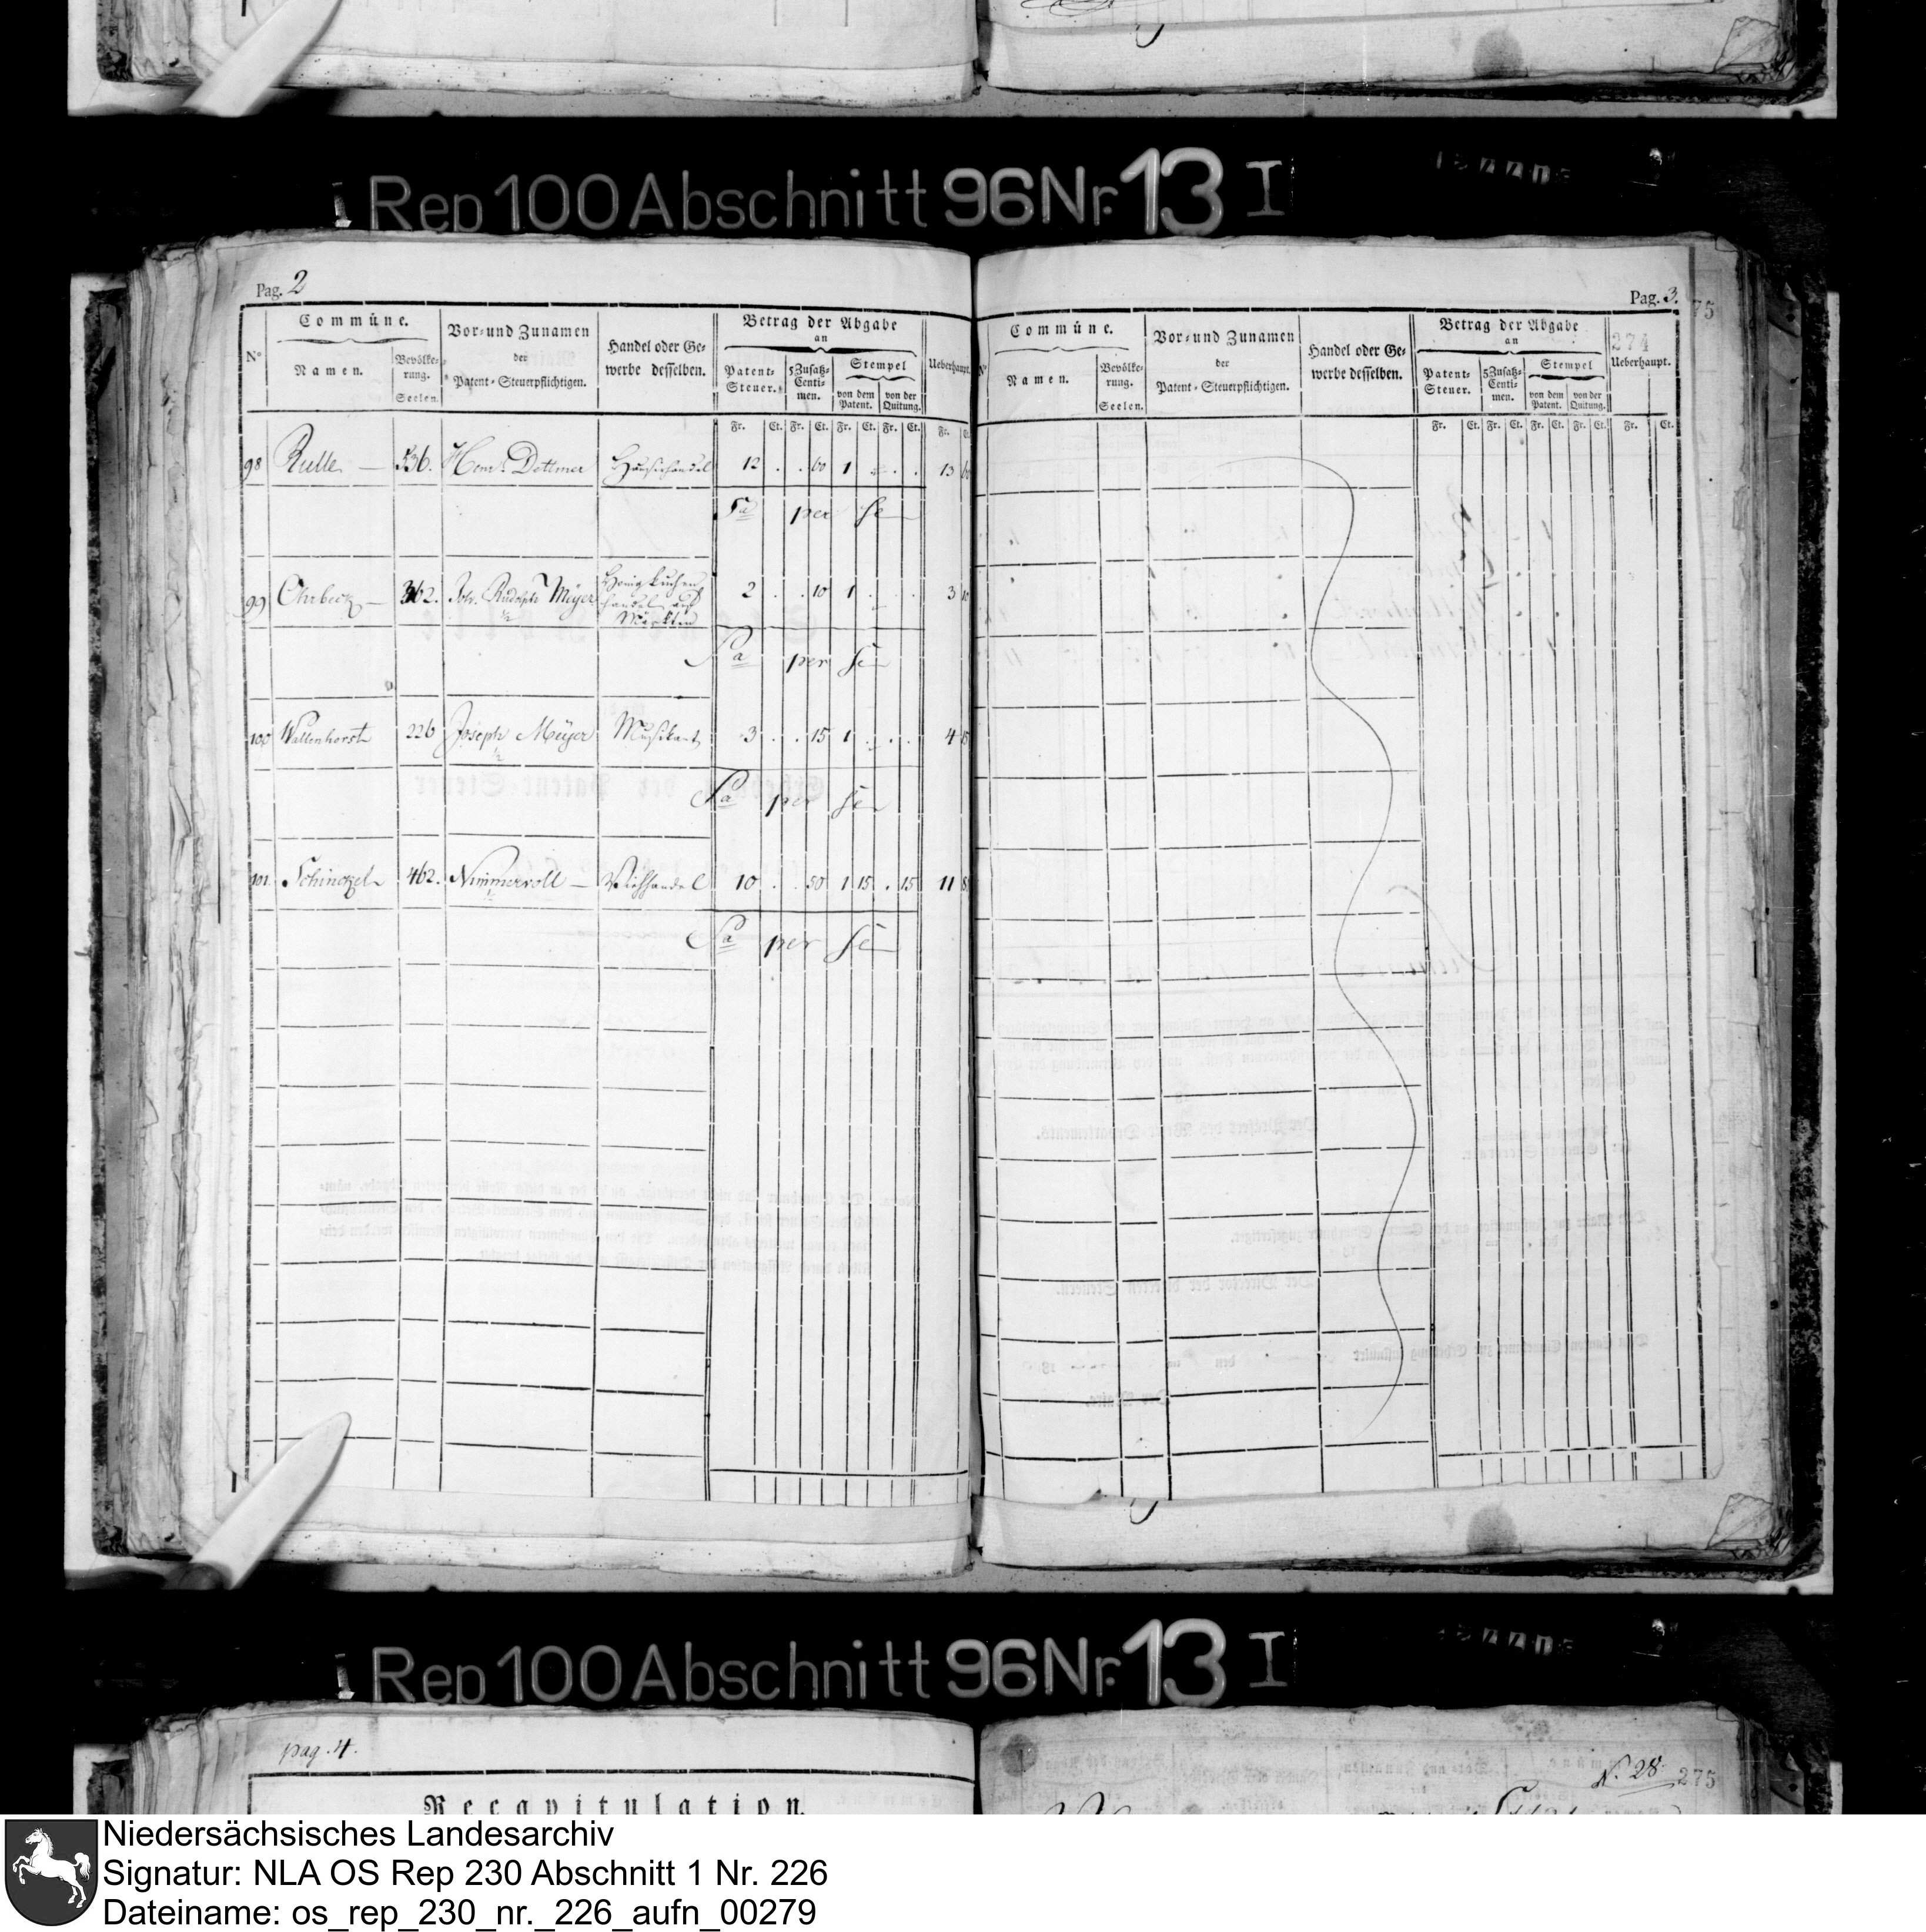 Rep 100 Abschnitt 96 Nr. 13 I
Pag. 2
N°
Commüne.
Namen.
Bevölke-
rung.
Seelen.
Vor- und Zunamen
der
Patent-Steuerpflichtigen.
Handel oder Ge-
werbe desselben.
Betrag der Abgabe
an
Patent-
Steuer.
5 Zusatz-
Centi-
men.
Stempel
von dem
Patent.
von der
Quitung.
Ueberhaupt.
Fr. Ct. Fr. Ct. Fr. Ct. Fr. Ct. Fr. Ct.
98 Rulle — 536. Henr. Dettmer Hausirhandel 12 . . 60 1 . . . 13 60
Sa per se
99 Ohrbeck — 362. Joh. Rudolph Meyer Honigkuchen
handel auf
Märkten 2 . . 10 1 . . . 3 10
Sa per se
100 Wallenhorst 226 Joseph Meyer Musikant 3 . . 15 1 . . . 4 15
Sa per se
101 Schinckel 462. Nimmervoll — Viehhandel 10 . . 50 1 15 . 15 11 80
Sa per se
Pag. 3.
75
274
N°
Commüne.
Namen.
Bevölke-
rung.
Seelen.
Vor- und Zunamen
der
Patent-Steuerpflichtigen.
Handel oder Ge-
werbe desselben.
Betrag der Abgabe
an
Patent-
Steuer.
5 Zusatz-
Centi-
men.
Stempel
von dem
Patent.
von der
Quitung.
Ueberhaupt.
Fr. Ct. Fr. Ct. Fr. Ct. Fr. Ct. Fr. Ct.
Rep 100 Abschnitt 96 Nr. 13 I
pag. 4.
Recapitulation
N. 28
275
Niedersächsisches Landesarchiv
Signatur: NLA OS Rep 230 Abschnitt 1 Nr. 226
Dateiname: os_rep_230_nr._226_aufn_00279